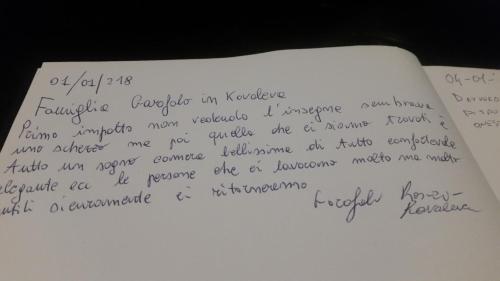 01/01/218
Famiglia Garofolo in Kovaleva
Primo impatto non vedendo l'insegne sembrava
uno scherzo me poi quello che ci siamo trovati è
tutto un sogno camera bellissima di tutto confortende
elegante ecc le persone che ci lavorono molto ma molto
utili sicuramente ci ritorneremo
Garofolo
Kovaleva
04-01-